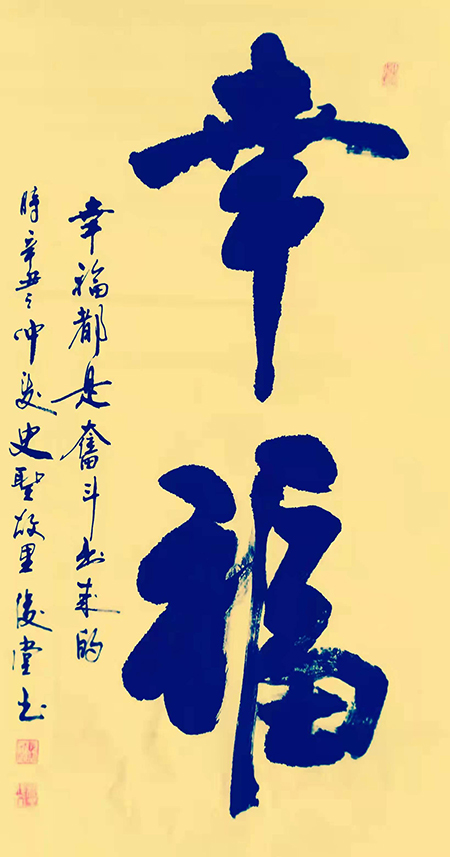 幸福
幸福都是奋斗出来的
時辛丑之仲夏史聖故里俊堂书